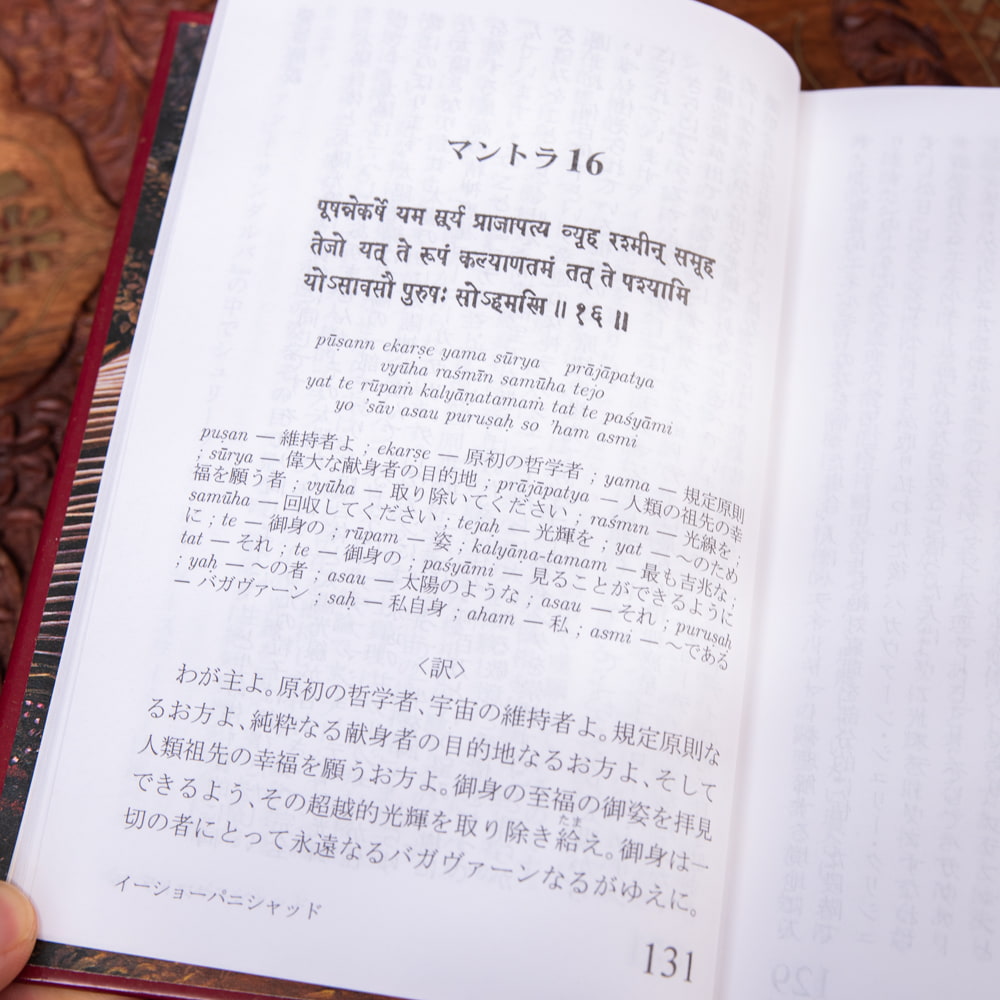 マントラ 16
पूषन्नेकर्षे यम सूर्य प्राजापत्य व्यूह रश्मीन् समूह
तेजो यत् ते रूपं कल्याणतमं तत् ते पश्यामि
योऽसावसौ पुरुषः सोऽहमस्मि ॥ १६ ॥
pūṣann ekarṣe yama sūrya prājāpatya
vyūha raśmīn samūha tejo
yat te rūpaṁ kalyāṇatamaṁ tat te paśyāmi
yo ’sāv asau puruṣaḥ so ’ham asmi
puṣan — 維持者よ ; ekarṣe — 原初の哲学者 ; yama — 規定原則
; sūrya — 偉大な献身者の目的地 ; prājāpatya — 人類の祖先の幸
福を願う者 ; vyūha — 取り除いてください ; raśmīn — 光線を ;
samūha — 回収してください ; tejaḥ — 光輝を ; yat — 〜のため
に ; te — 御身の ; rūpam — 姿 ; kalyāṇa-tamam — 最も吉兆な ;
tat — それ ; te — 御身の ; paśyāmi — 見ることができるように
; yaḥ — 〜の者 ; asau — 太陽のような ; asau — それ ; puruṣaḥ
— バガヴァーン ; saḥ — 私自身 ; aham — 私 ; asmi — 〜である
〈訳〉
わが主よ。原初の哲学者、宇宙の維持者よ。規定原則な
るお方よ、純粋なる献身者の目的地なるお方よ、そして
人類祖先の幸福を願うお方よ。御身の至福の御姿を拝見
できるよう、その超越的光輝を取り除き給え。御身は一
たま
切の者にとって永遠なるバガヴァーンなるがゆえに。
イーショーパニシャッド
131